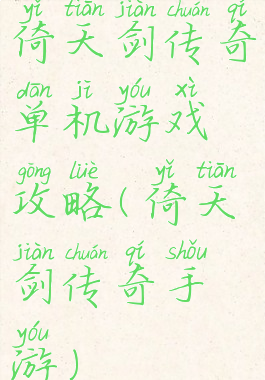 yǐ tiān jiàn chuán qí
倚天剑传奇
dān jī yóu xì
单机游戏
gōng lüè yǐ tiān
攻略(倚天
jiàn chuán qí shǒu
剑传奇手
yóu
游)